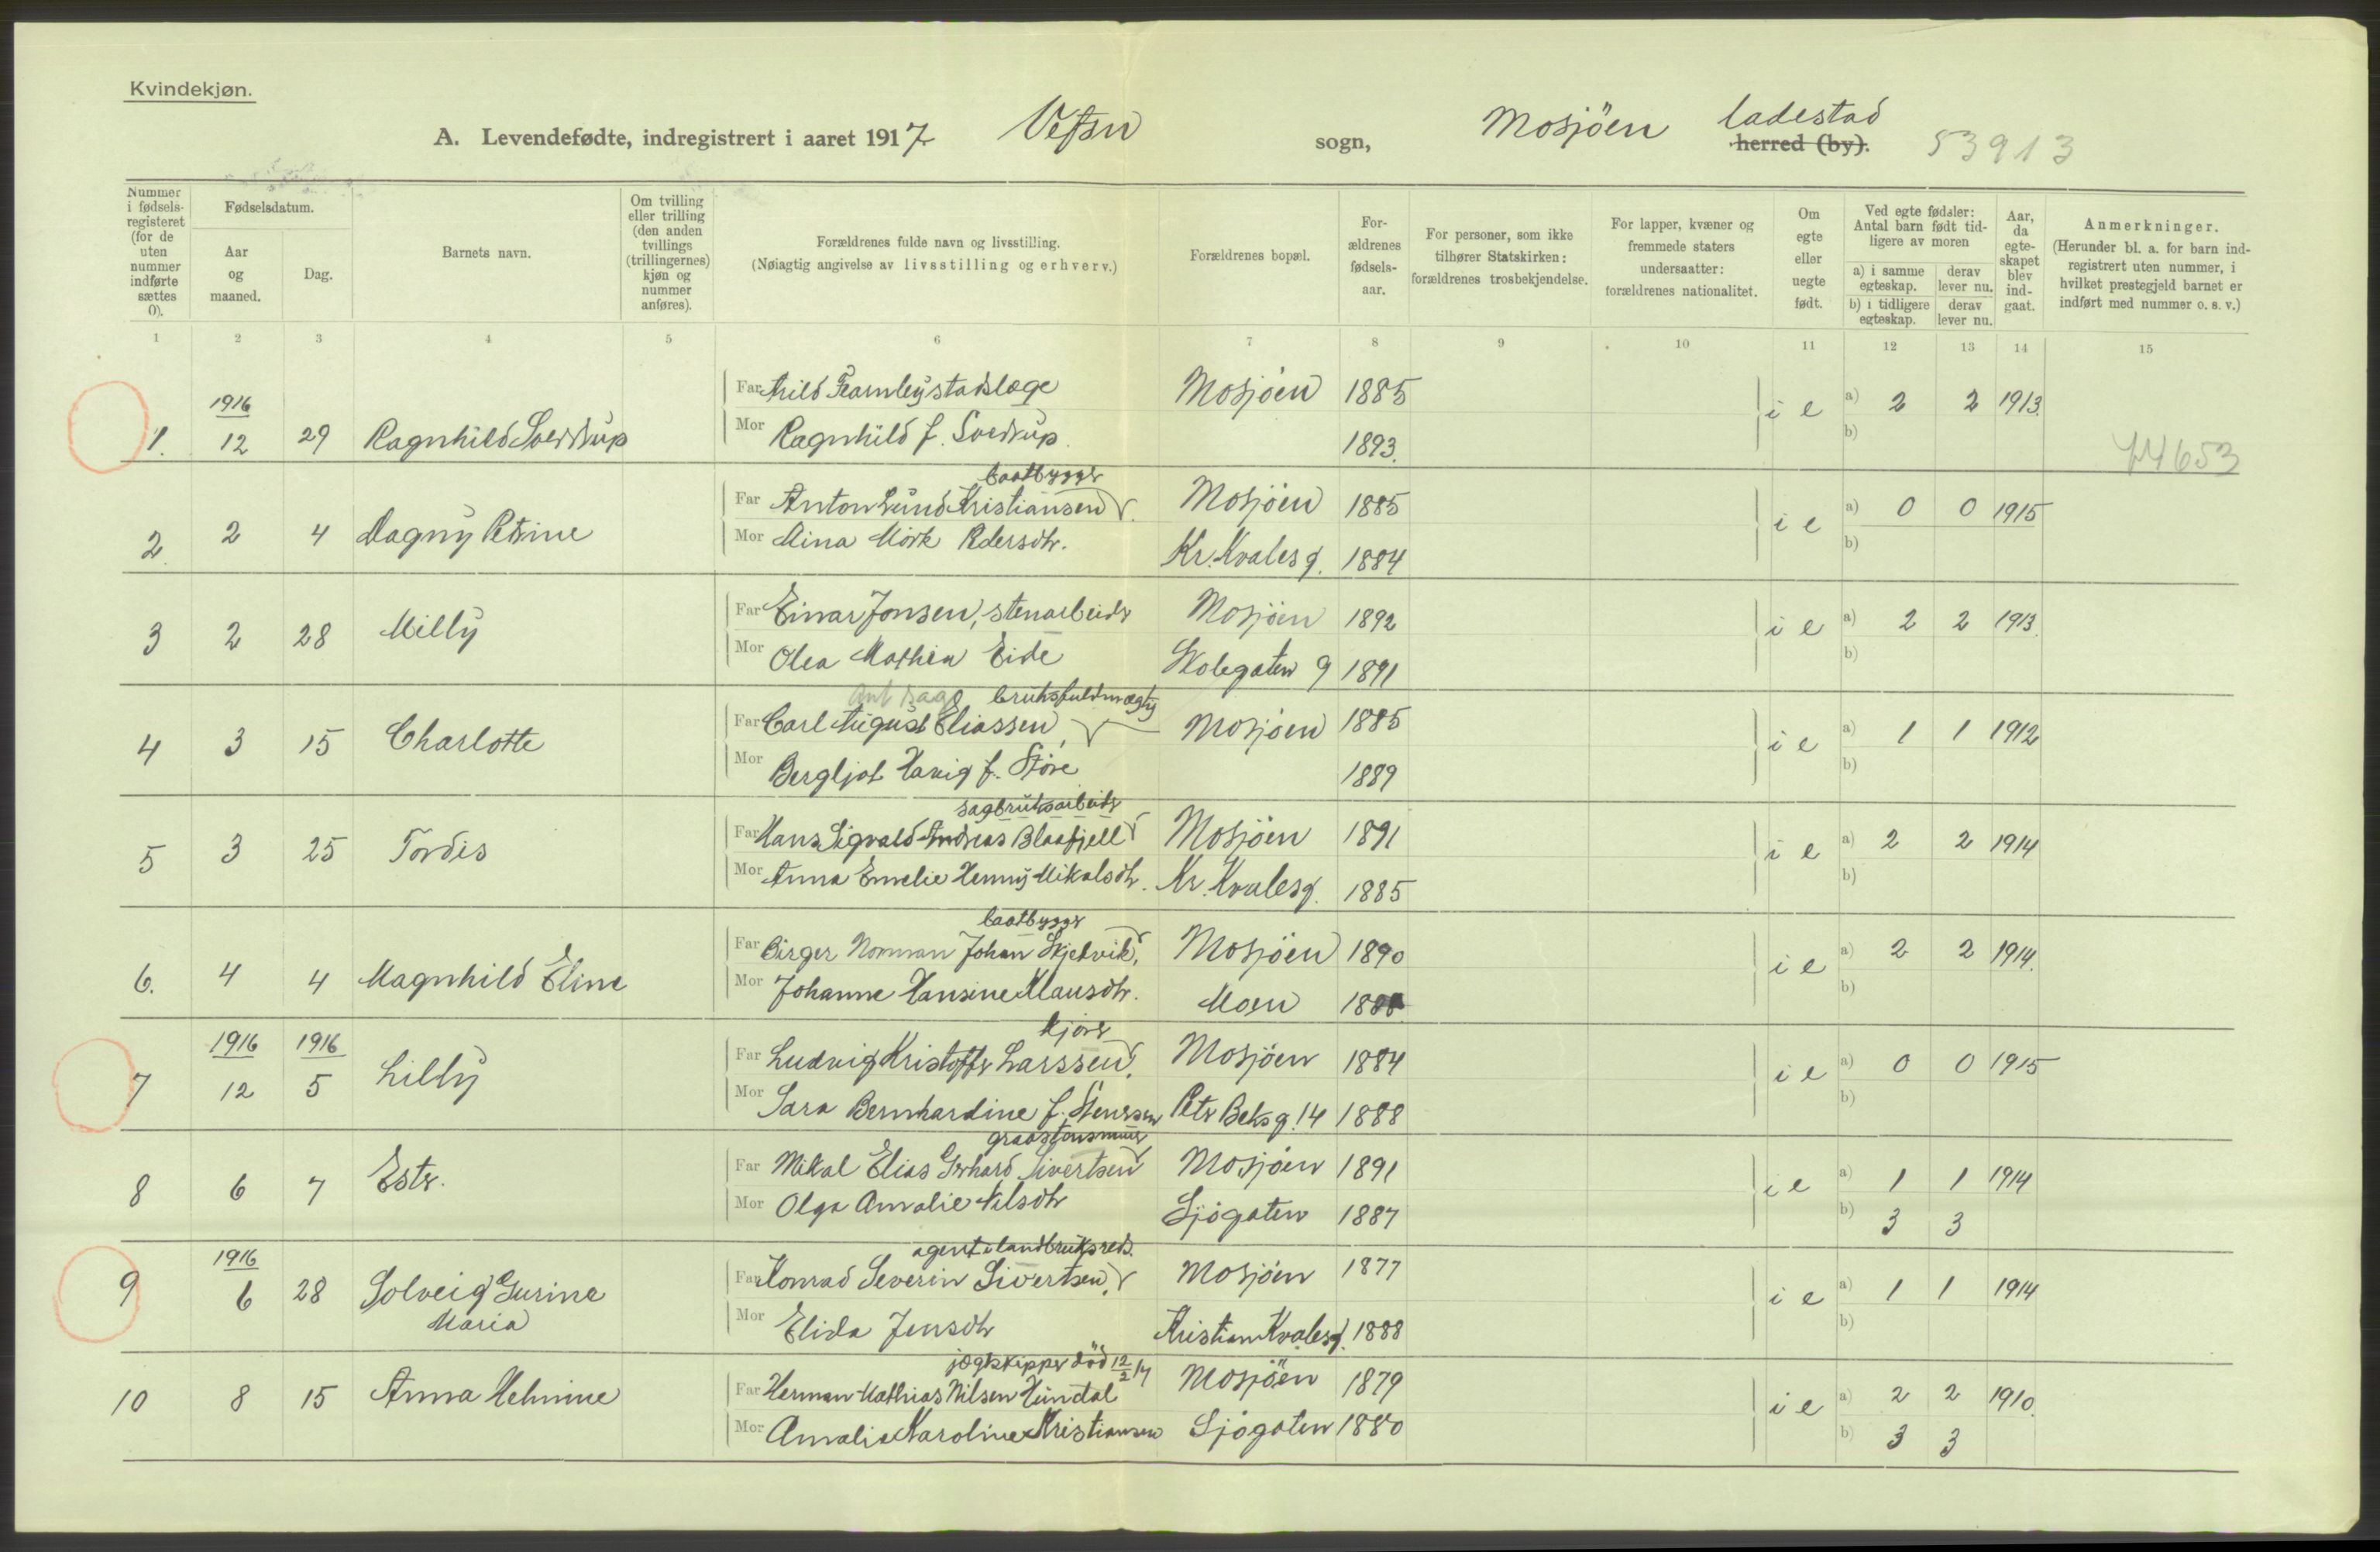 Kvindekjøn.
A. Levendefødte, indregistrert i aaret 1917 Vefsn sogn, Mosjöen ladestad herred (by). 53913
Nummer i fødselsregisteret (for de uten nummer indførte sættes 0).
Fødselsdatum.
Aar og maaned.
Dag.
Barnets navn.
Om tvilling eller trilling (den anden tvillings (trillingernes) kjøn og nummer anføres).
Forældrenes fulde navn og livsstilling.
(Nøiagtig angivelse av livsstilling og erhverv.)
Forældrenes bopæl.
Forældrenes fødselsaar.
For personer, som ikke tilhører Statskirken: forældrenes trosbekjendelse.
For lapper, kvæner og fremmede staters undersaatter: forældrenes nationalitet.
Om egte eller uegte født.
Ved egte fødsler: Antal barn født tidligere av moren
a) i samme egteskap. derav lever nu.
b) i tidligere egteskap. derav lever nu.
Aar, da egteskapet blev indgaat.
Anmerkninger.
(Herunder bl. a. for barn indregistrert uten nummer, i hvilket prestegjeld barnet er indført med nummer o. s. v.)
1 2 3 4 5 6 7 8 9 10 11 12 13 14 15
1916 Far Arild Fearnley stadslæge Mosjöen 1885 i e a) 2 2 1913.
1. 12 29 Ragnhild Sverdrup Mor Ragnhild f. Sverdrup. 1893. b)
44653
baatbygger
Far Anton Lund Kristiansen Mosjöen 1885 i e a) 0 0 1915
2. 2 4 Dagny Petrine Mor Mina Mörk Pedersdtr. Kr. Kvalesg. 1884 b)
Far Einar Jonsen, stenarbeider Mosjöen 1892 i e a) 2 2 1913.
3 2 28 Milly Mor Olea Mathea Eide Skolegaten 9 1891 b)
bruksfuldmægtig
Far Carl August Eliassen Mosjöen 1885 i e a) 1 1 1912
4 3 15 Charlotte Mor Bergljot Havig f. Støre 1889 b)
sagbruksarbeider
Far Hans Sigvald Andreas Blaafjell Mosjöen 1891 i e a) 2 2 1914
5 3 25 Tordis Mor Anna Emelie Henny Mikalsdtr. Kr. Kvalesg. 1885 b)
baatbygger
Far Birger Norman Johan Skjelvik, Mosjöen 1890 i e a) 2 2 1914.
6. 4 4 Magnhild Eline Mor Johanne Hansine Klausdtr. Moen b)
kjører
1916 1916 Far Ludvig Kristoffer Larssen, Mosjöen 1884 i e a) 0 0 1915
7 12 5 Lilly Mor Sara Bernhardine f. Stenersen Peter Beksg. 14 1888 b)
graastensmurer
Far Mikal Elias Gerhard Sivertsen Mosjöen 1891 i e a) 1 1 1914
8 6 7 Ester. Mor Olga Amalie Nilsdtr Sjögaten 1887 b) 3 3
agent i landbruksreds.
1916 Far Konrad Severin Sivertsen, Mosjöen 1877 i e a) 1 1 1914
9 6 28 Solveig Gurine Maria Mor Elida Jensdtr Kristian Kvalesg. 1888 b)
jægtskipper død 12/2 17
Far Herman Mathias Nilsen Hundal Mosjöen 1879 i e a) 2 2 1910.
10 8 15 Anna Helmine Mor Amalie Karoline Kristiansen Sjögaten 1880 b) 3 3